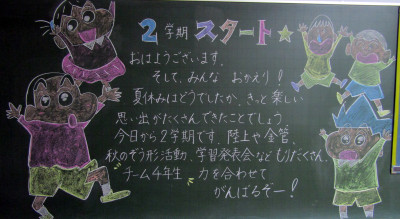 2学期 スタート☆
おはようございます。
そして、みんな おかえり!
夏休みはどうでしたか。きっと楽しい
思い出がたくさんできたことでしょう。
今日から2学期です。陸上や金管、
秋のぞう形活動、学習発表会など もりだくさん。
チーム4年生 力を合わせて
がんばるぞー!